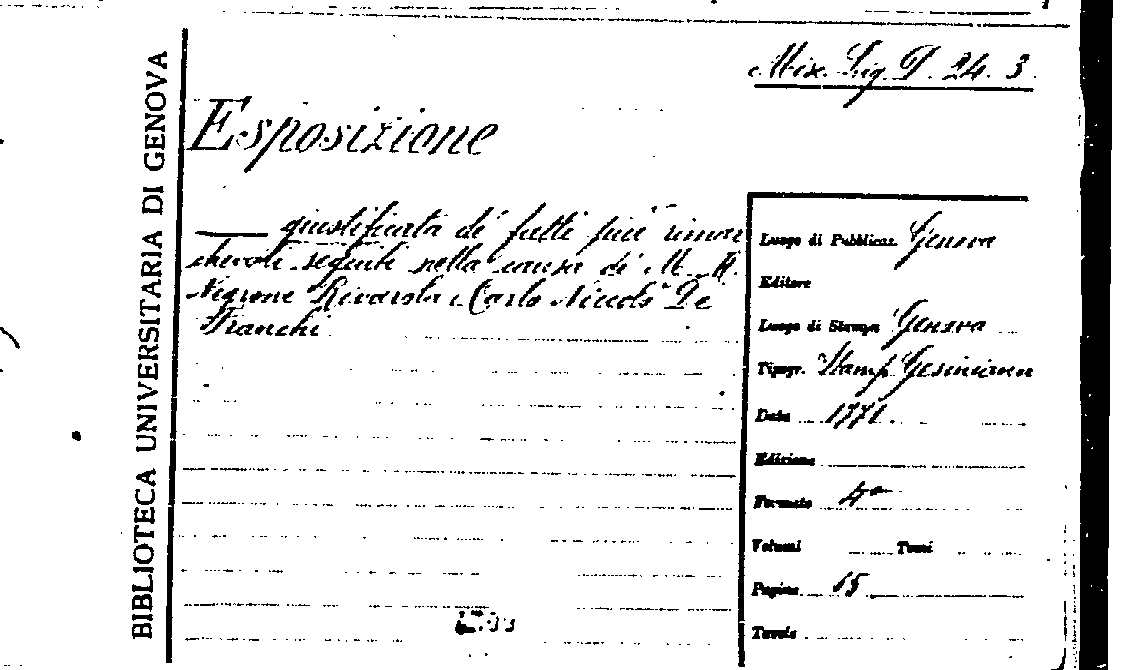 BIBLIOTECA UNIVERSITARIA DI GENOVA
Misc. Lig. D. 24. 3.
Esposizione
giustificata di fatti più rimar
chevoli seguiti nella causa di M. M.
Negrone Rivarola e Carlo Nicolò De
Franchi
Luogo di Pubblicaz. Genova
Editore
Luogo di Stampa Genova
Tipogr. Stamp. Gesiniana
Data 1771.
Edizione
Formato 4°
Volumi Tomi
Pagine 15
Tavole